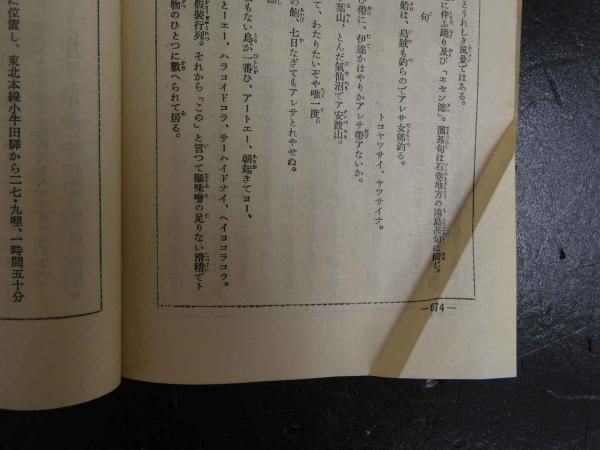 とうれしき風景ではある。
に伴ふ踊り及び「エセン節」。濱甚句は石卷地方の遠島甚句に同じ。
句
船は、烏賊も釣らのでアレサ女郎釣る。
トコヤツサイ、ヤツサイナ。
び帶に、伊達かはやりかアレサ帶アないか。
葉山、とんだ氣仙沼でア安波山。
て、わたりたいぞや唯一度。
の鮑、七日なぎてもアレサとれやせぬ。
もない鳥が一番ひ、アートエー、朝起きてヨー、
とーエー、ハラヨイドコラ、サーハイドナイ、ヘイヨコラコラ。
假裝行列。それから「この」と言つて腦味噌の足りない滑稽でト
物のひとつに數へられて居る。
—674—
に位置し、東北本線小牛田驛から二七・九哩、一時間五十分